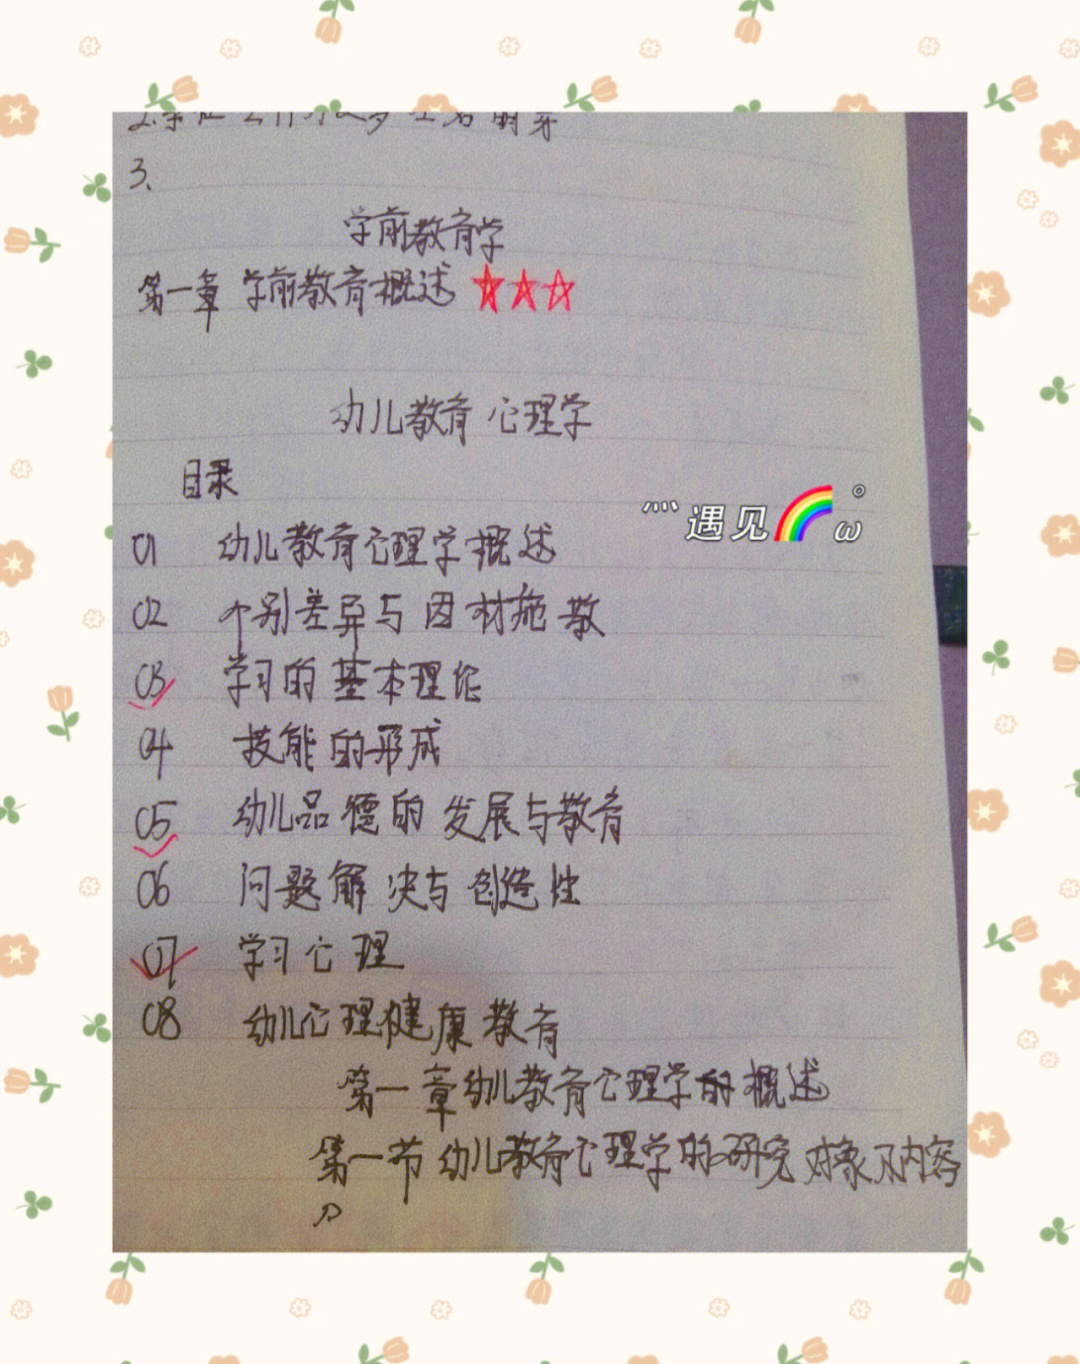 3、
学前教育学
第一章 学前教育概述 ☆☆☆
幼儿教育心理学
目录
遇见🌈
01 幼儿教育心理学概述
02 个别差异与因材施教
03 学习的基本理论
04 技能的形成
05 幼儿品德的发展与教育
06 问题解决与创造性
07 学习心理
08 幼儿心理健康教育
第一章幼儿教育心理学的概述
第一节 幼儿教育心理学的研究对象及内容